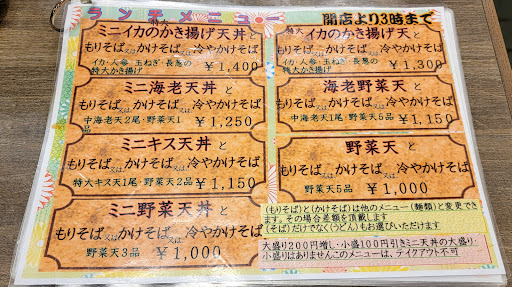 ランチメニュー
開店より3時まで
特大
ミニイカのかき揚げ天丼と
もりそば又はかけそば又は冷やかけそば
イカ・人参・玉ねぎ・長葱の
特大かき揚げ ¥1,400
ミニ海老天丼と
もりそば又はかけそば又は冷やかけそば
中海老天2尾・野菜天1
品 ¥1,250
ミニキス天丼と
もりそば又はかけそば又は冷やかけそば
特大キス天1尾・野菜天2品 ¥1,150
ミニ野菜天丼と
もりそば又はかけそば又は冷やかけそば
野菜天3品 ¥1,000
特大
イカのかき揚げ天と
もりそば又はかけそば又は冷やかけそば
イカ・人参・玉ねぎ・長葱の
特大かき揚げ ¥1,300
海老野菜天と
もりそば又はかけそば又は冷やかけそば
中海老天1尾・野菜天5品 ¥1,150
野菜天と
もりそば又はかけそば又は冷やかけそば
野菜天5品 ¥1,000
(もりそば)と(かけそば)は他のメニュー(麺類)と変更でき
ます。その場合差額を頂戴します
(そば)だけでなく(うどん)もお選びいただけます
大盛り200円増し・小盛100円引きミニ天丼の大盛り・
小盛りはありませんこのメニューは、テイクアウト不可